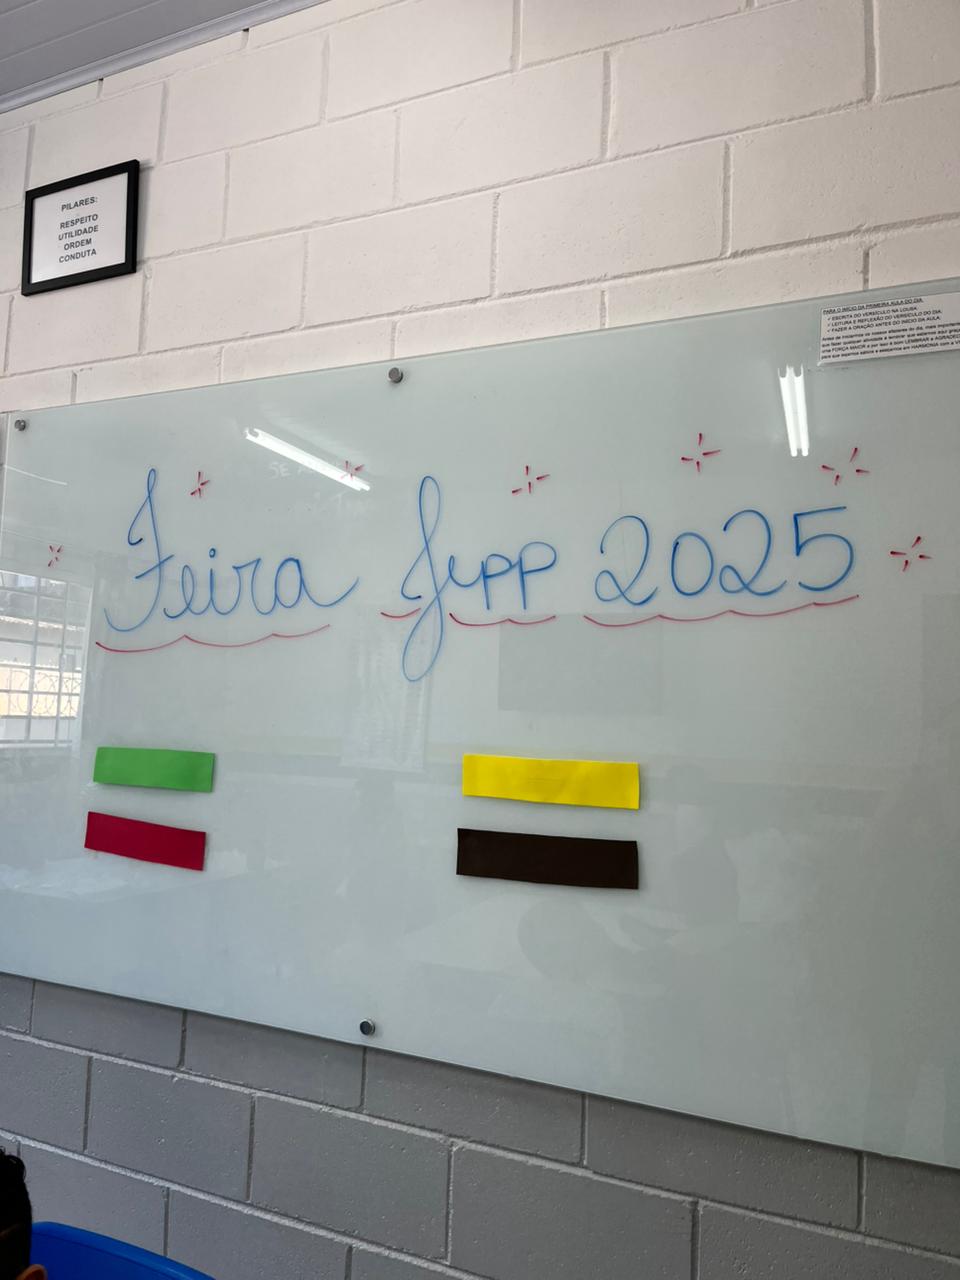 PILARES:
RESPEITO
UTILIDADE
ORDEM
CONDUTA
PARA O INÍCIO DA PRIMEIRA AULA DO DIA
✓ ESCRITA DO VERSÍCULO NA LOUSA.
✓ LEITURA E REFLEXÃO DO VERSÍCULO DO DIA.
✓ FAZER A ORAÇÃO ANTES DO INÍCIO DA AULA.
Feira Jepp 2025